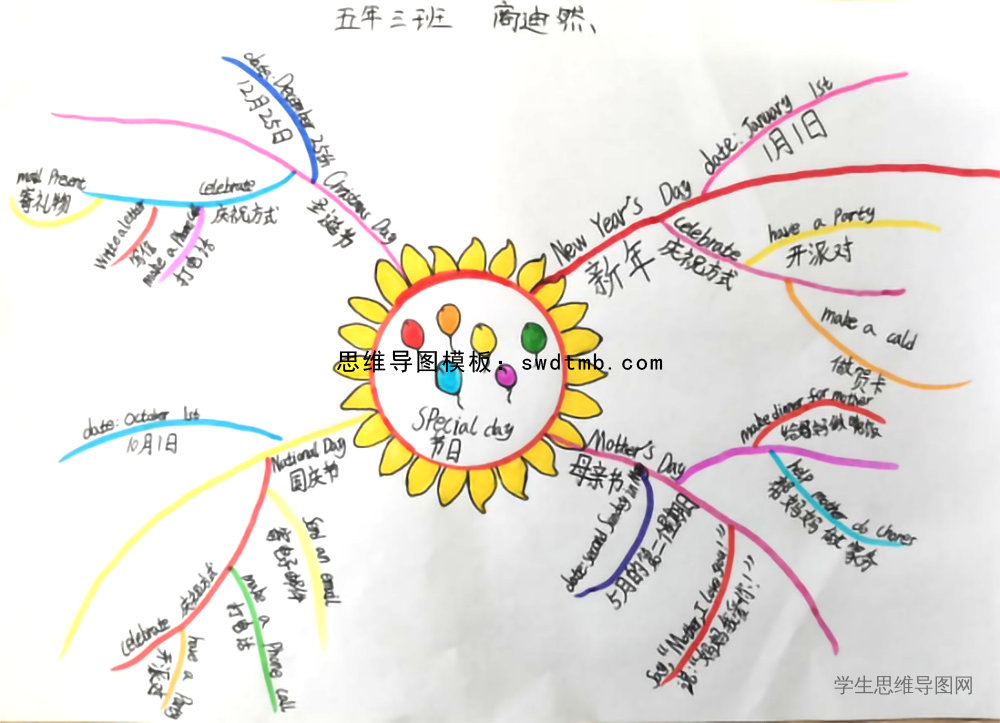 五年三班 商迪然
Special day
节日
思维导图模板：swdtmb.com
New Year's Day
新年
date: January 1st
1月1日
celebrate
庆祝方式
have a party
开派对
make a cald
做贺卡
Mother's Day
母亲节
make dinner for mother
给妈妈做晚饭
help mother do chores
帮妈妈做家务
date: second Sunday in
5月的第二个星期日
Say, "Mother, I love you!"
说："妈妈我爱你！"
National Day
国庆节
date: October 1st
10月1日
Send an email
寄电子邮件
celebrate 庆祝方式
make a Phone call
打电话
have a Party
开派对
Christmas Day
圣诞节
date: December 25th
12月25日
celebrate
庆祝方式
mail Present
寄礼物
write a letter
写信
make a Phone call
打电话
学生思维导图网